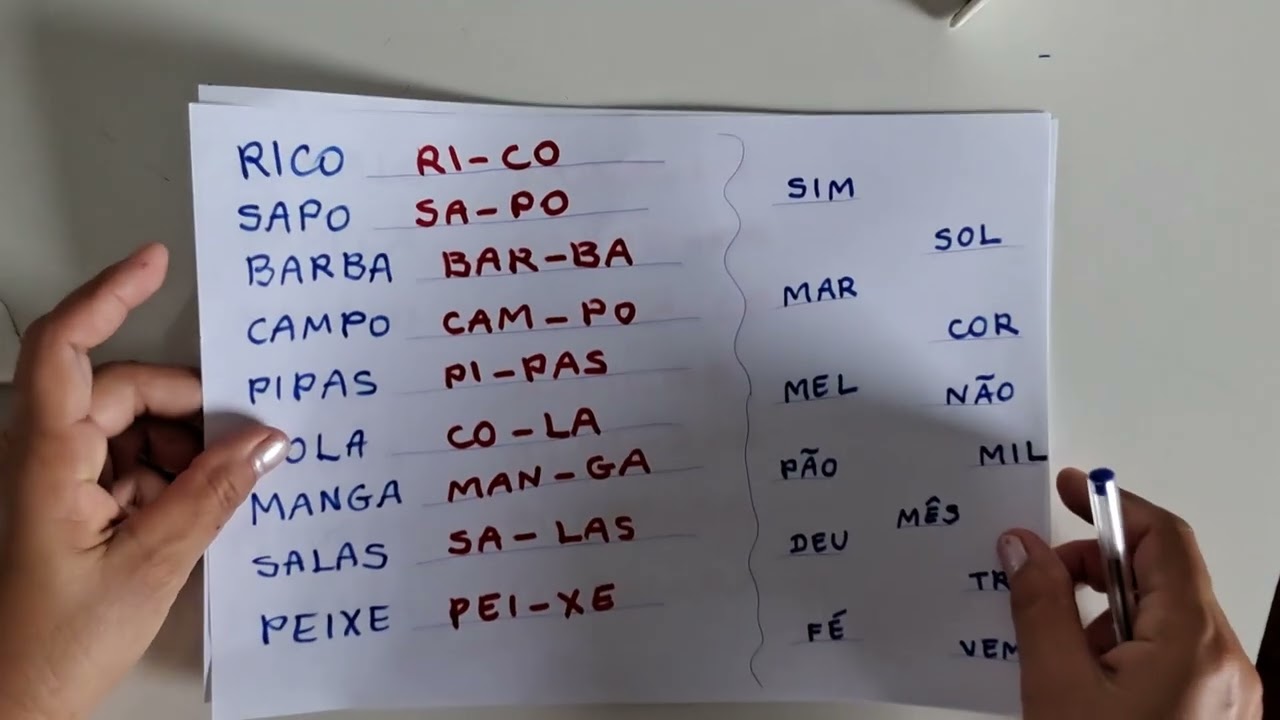 RICO RI-CO
SAPO SA-PO
BARBA BAR-BA
CAMPO CAM-PO
PIPAS PI-PAS
CO-LA
MANGA MAN-GA
SALAS SA-LAS
PEIXE PEI-XE
SIM
SOL
MAR
COR
MEL
NÃO
PÃO
MIL
MÊS
DEU
FÉ
VEM